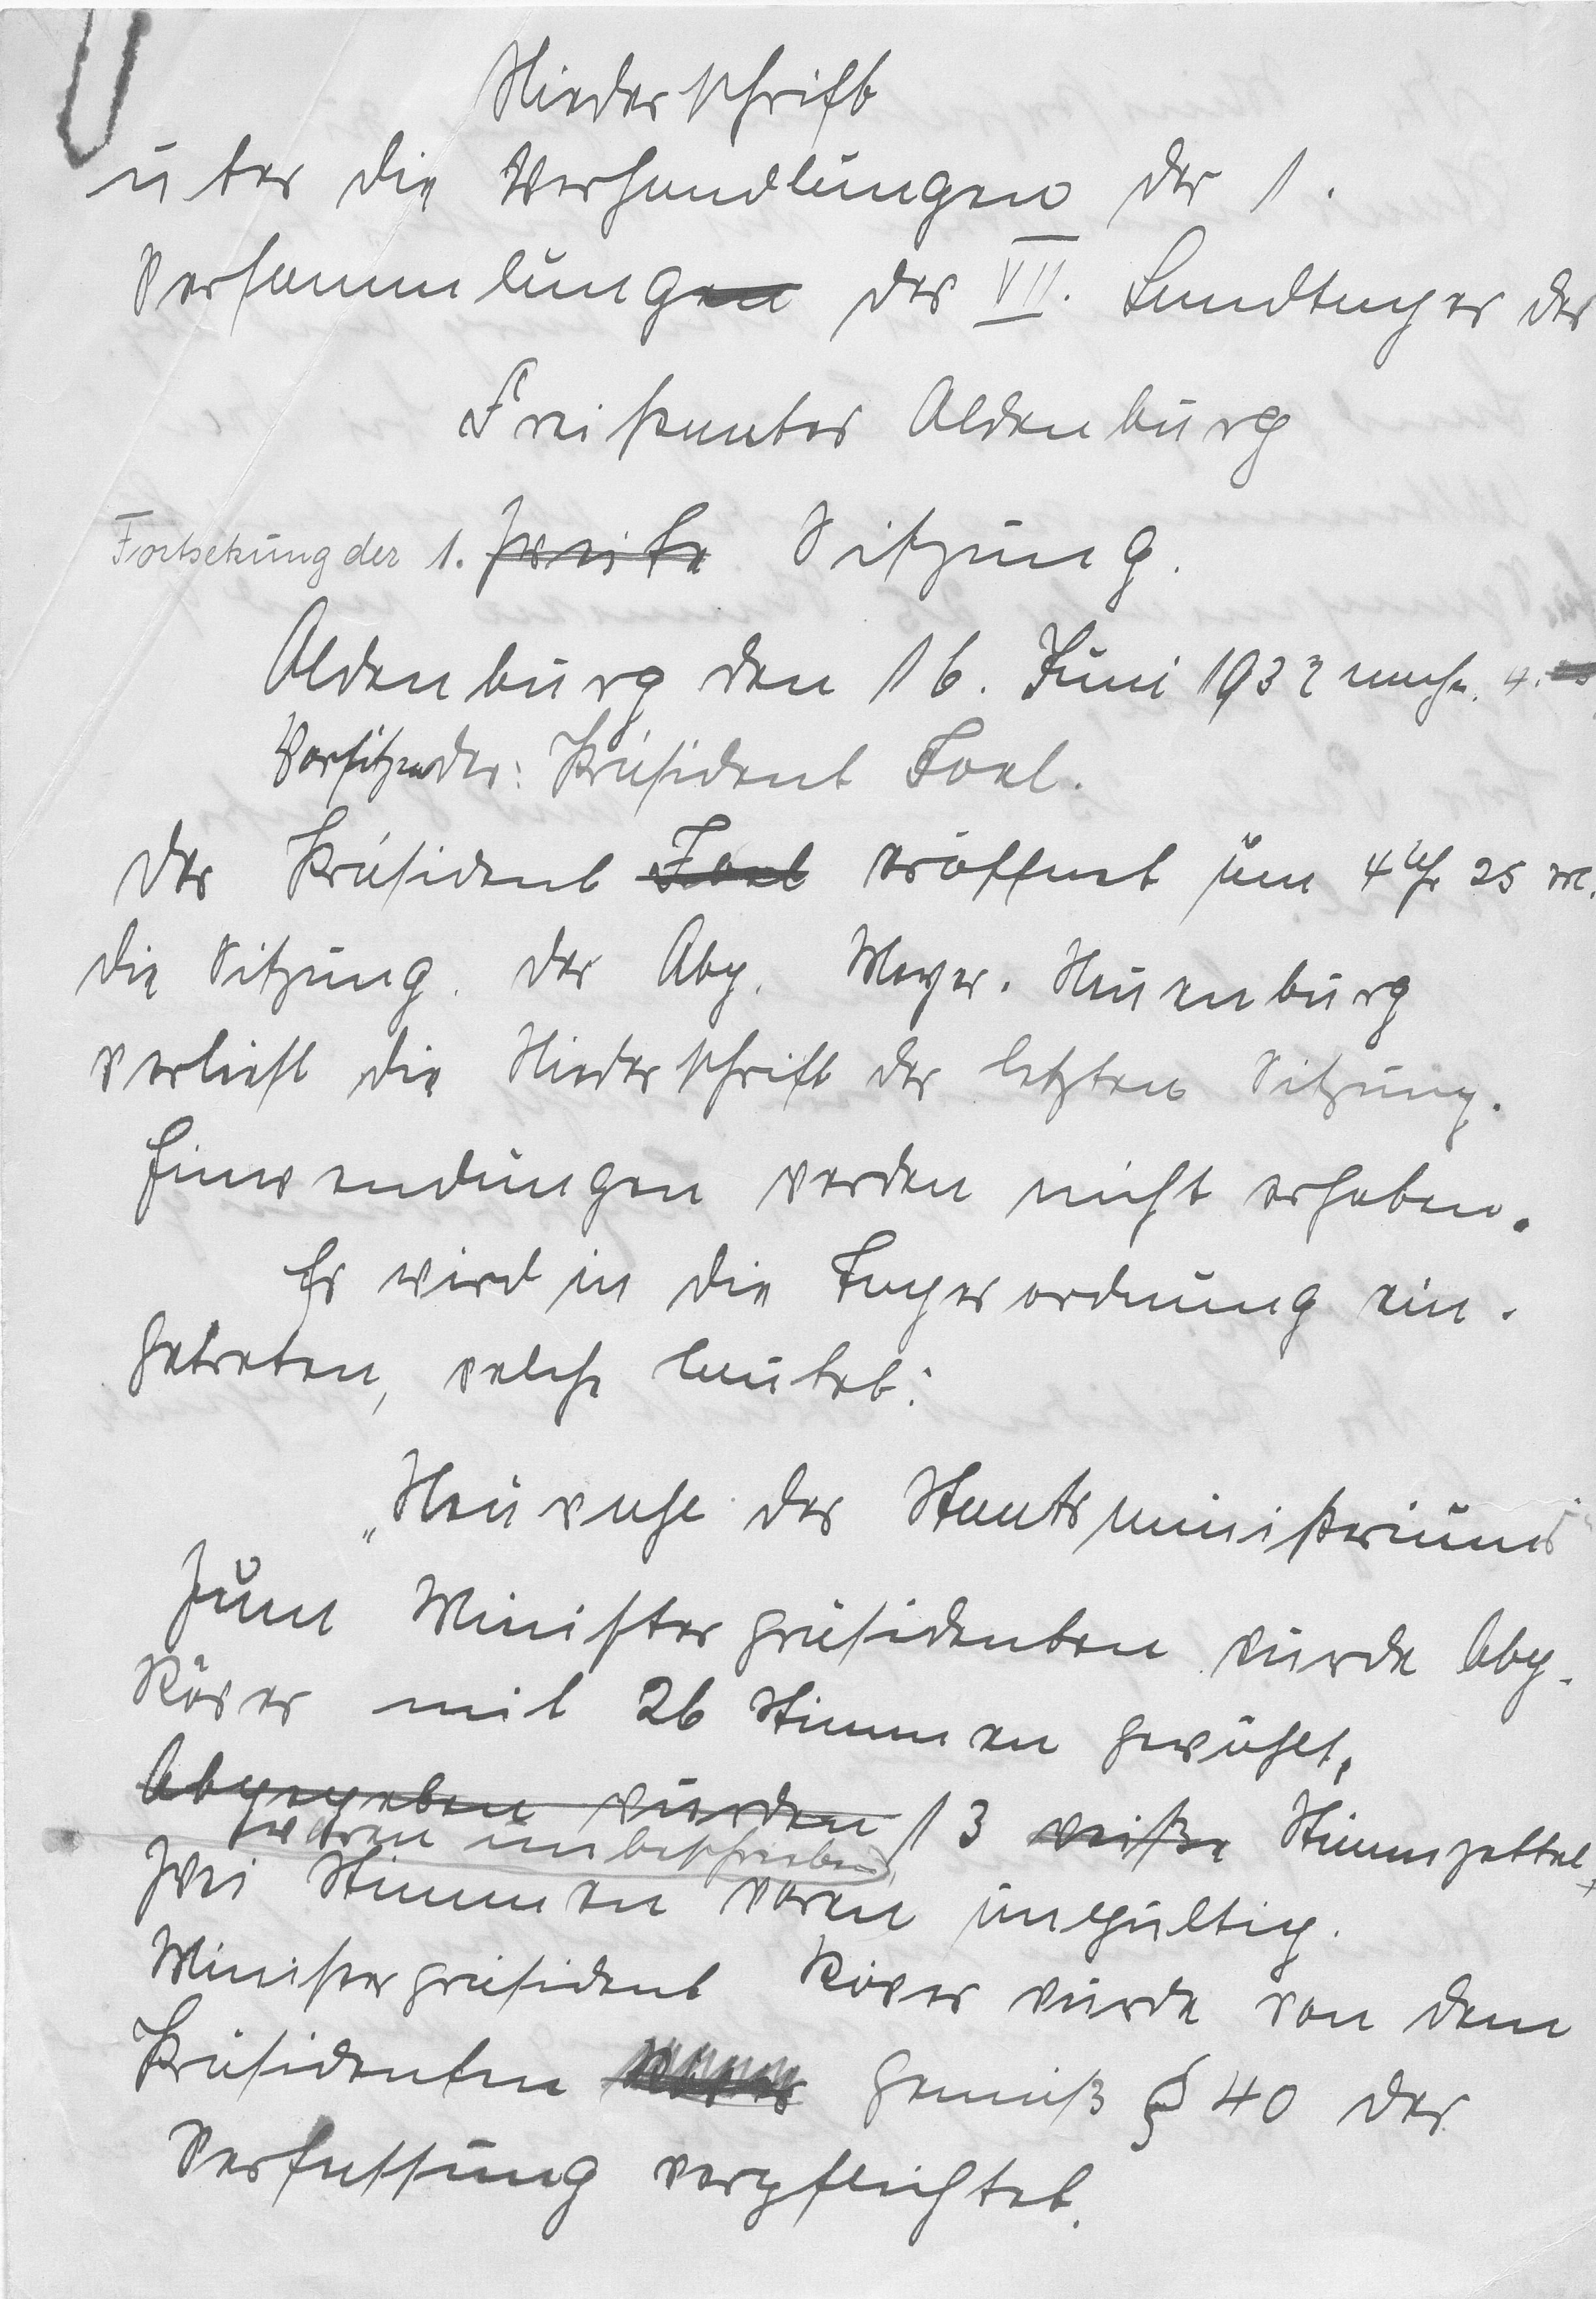 Niederschrift
über die Verhandlungen der 1.
Versammlungen des VII. Landtages des
Freistaates Oldenburg
Fortsetzung der 1. Zweite Sitzung.
Oldenburg den 16. Juni 1932 nachm. 4.
Vorsitzender: Präsident Joel.
Der Präsident Joel eröffnet um 4 Uhr 25 M.
die Sitzung. Der Abg. Meyer-Neuenburg
verliest die Niederschrift der letzten Sitzung.
Einwendungen werden nicht erhoben.
Es wird in die Tagesordnung ein-
getreten, welche lautet:
„Neuwahl des Staatsministeriums
Zum Ministerpräsidenten wurde Abg.
Röver mit 26 Stimmen gewählt,
Abgegeben wurden 13 weiße Stimmzettel,
waren unbeschrieben,
Zwei Stimmen waren ungültig.
Ministerpräsident Röver wurde von dem
Präsidenten Röver gemäß § 40 der
Verfassung verpflichtet.